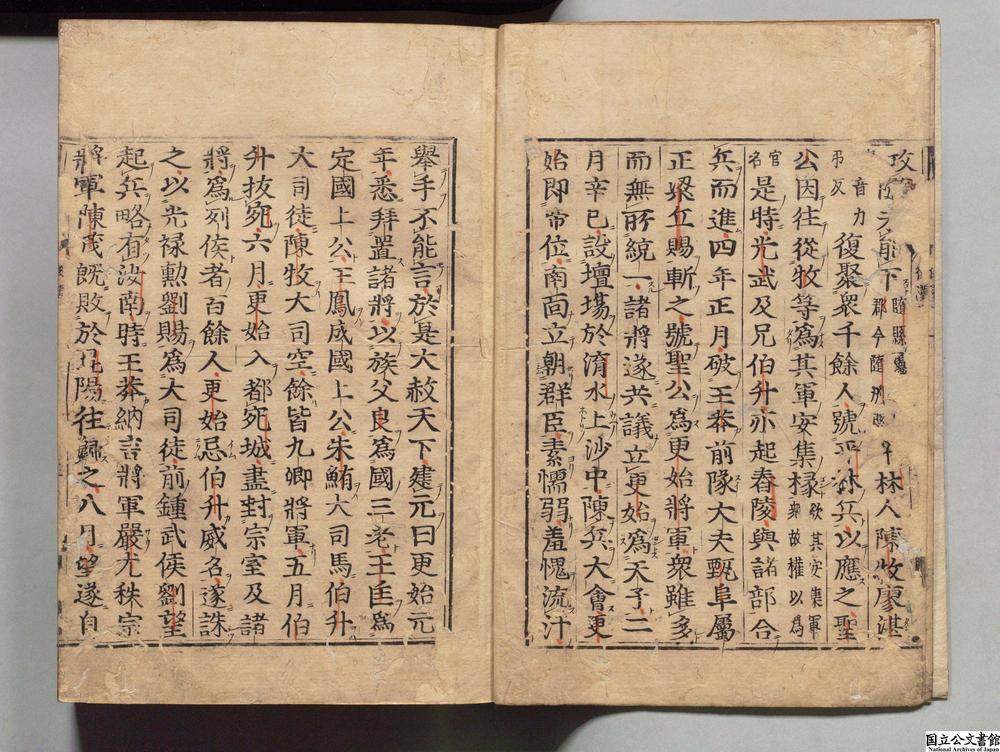 攻下隨縣屬郡今隨州林人陳牧廖湛
音力弔反復聚衆千餘人號平林兵以應之聖
公因往從牧等為其軍安集掾欲其安集軍衆故權以為
官名是時光武及兄伯升亦起舂陵與諸部合
兵而進四年正月破王莽前隊大夫甄阜屬
正梁丘賜斬之號聖公為更始將軍衆雖多
而無所統一諸將遂共議立更始為天子二
月辛巳設壇場於淯水上沙中陳兵大會更
始即帝位南面立朝群臣素懦弱羞愧流汗
舉手不能言於是大赦天下建元曰更始元
年悉拜置諸將以族父良為國三老王匡為
定國上公王鳳成國上公朱鮪大司馬伯升
大司徒陳牧大司空餘皆九卿將軍五月伯
升拔宛六月更始入都宛城盡封宗室及諸
將為列侯者百餘人更始忌伯升威名遂誅
之以光禄勳劉賜為大司徒前鍾武侯劉望
起兵略有汝南時王莽納言將軍嚴尤秩宗
將軍陳茂既敗於昆陽往歸之八月望遂自
国立公文書館
National Archives of Japan